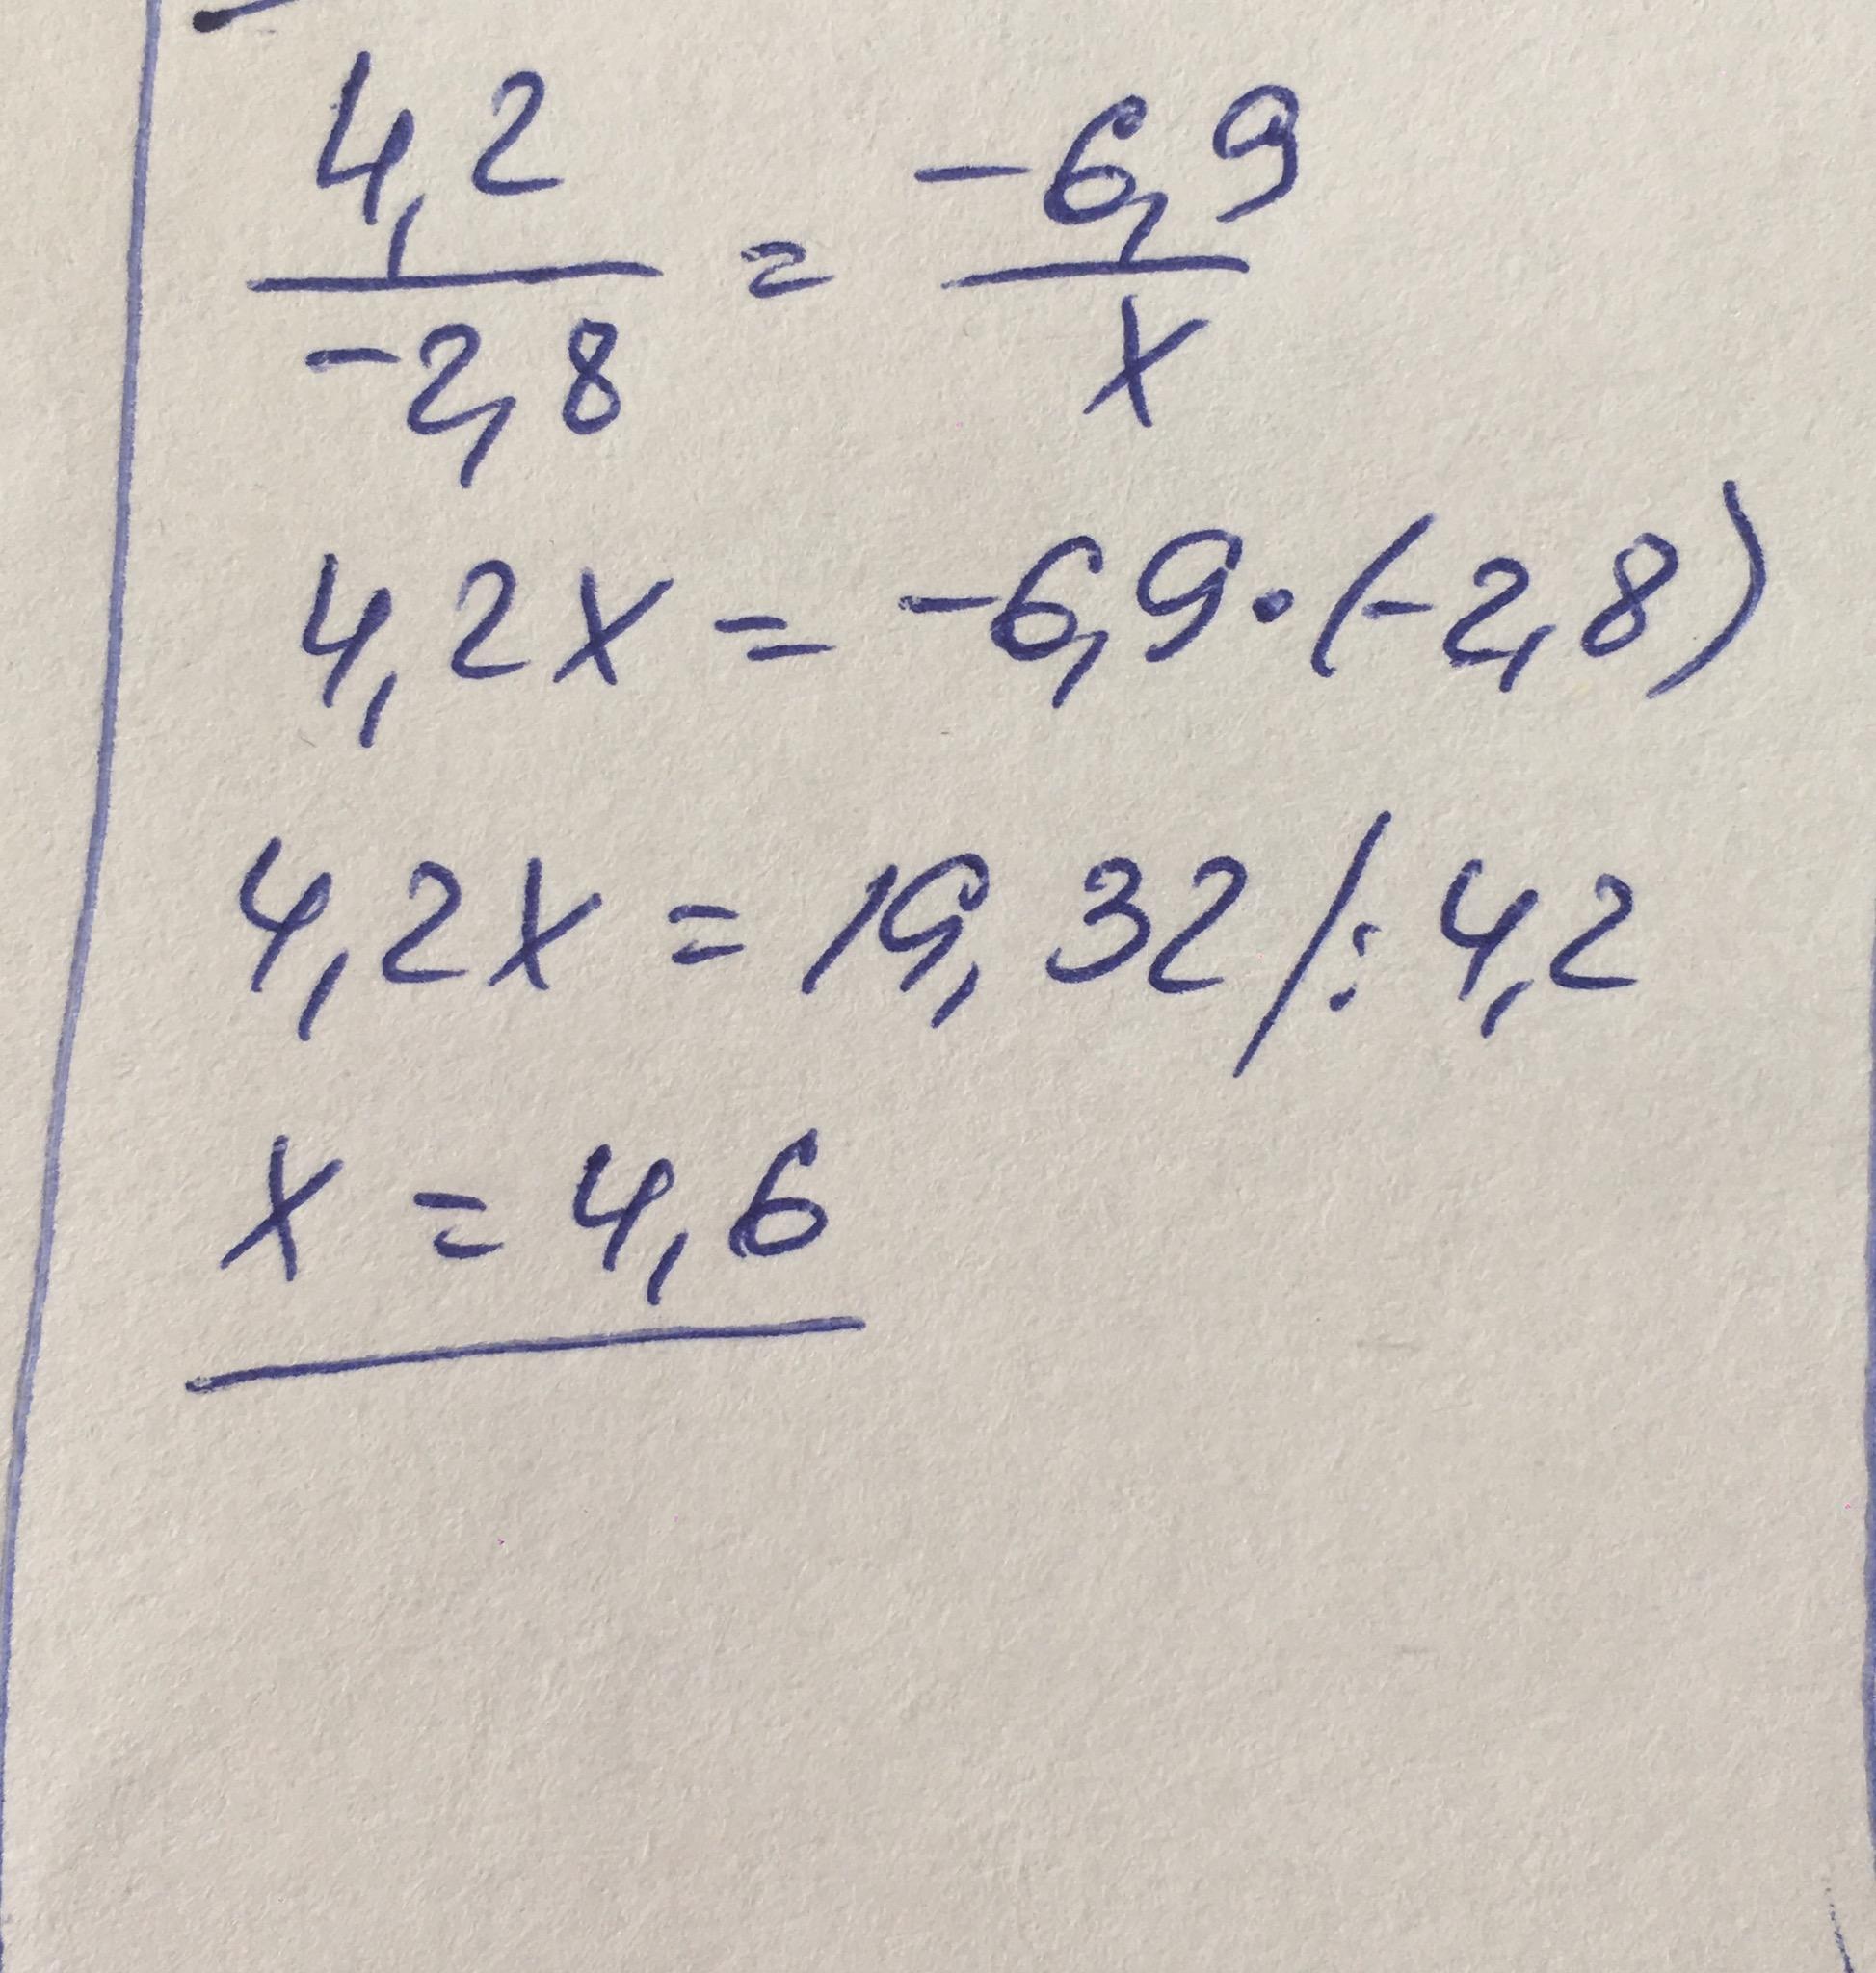 4,2 / -2,8 = -6,9 / x
4,2x = -6,9·(-2,8)
4,2x = 19,32 /: 4,2
x = 4,6